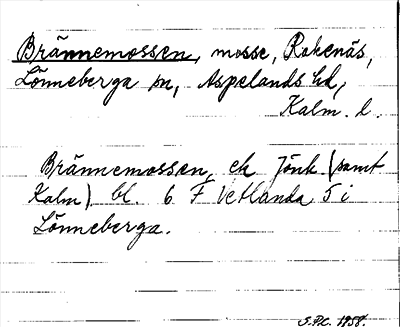 Brännemossen, mosse, Rokenäs,
Lönneberga sn, Aspelands hd,
Kalm. l.
Brännemossen, ek Jönk (samt
Kalm) bl. 6 F Vetlanda 5 i
Lönneberga.
S.P.C. 1958.